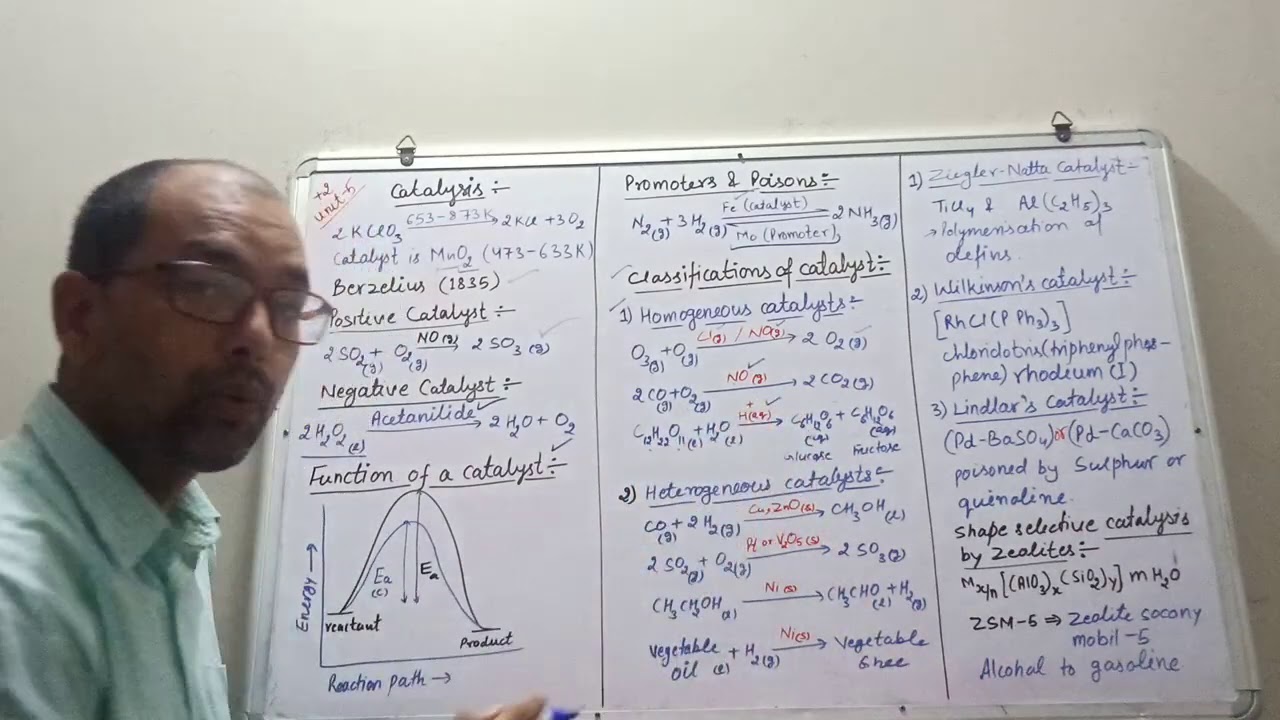 +2
unit-5
Catalysis :-
2KClO3 653-873K → 2KCl + 3O2
Catalyst is MnO2 (473-633K)
Berzelius (1835)
Positive Catalyst :-
2SO2(g) + O2(g) NO(g) → 2SO3(g)
Negative Catalyst :-
2H2O2(l) Acetanilide → 2H2O + O2
Function of a catalyst :-
Energy →
Ea (c)
Ea
reactant
Product
Reaction path →
Promoters & Poisons :-
N2(g) + 3H2(g) Fe (Catalyst) Mo (Promoter) 2NH3(g)
Classifications of catalyst :-
1) Homogeneous catalysts :-
O3(g) + O(g) Cl(g) / NO(g) → 2O2(g)
2CO(g) + O2(g) NO(g) → 2CO2(g)
C12H22O11(l) + H2O(l) H+(aq) → C6H12O6(aq) + C6H12O6(aq)
Glucose Fructose
2) Heterogeneous catalysts :-
CO(g) + 2H2(g) Cu, ZnO(s) → CH3OH(l)
2SO2(g) + O2(g) Pt or V2O5(s) → 2SO3(g)
CH3CH2OH(l) Ni(s) → CH3CHO(l) + H2(g)
vegetable oil (l) + H2(g) Ni(s) → Vegetable Ghee
1) Ziegler-Natta Catalyst :-
TiCl4 & Al(C2H5)3
→ Polymensation of
olefins.
2) Wilkinson's catalyst :-
[RhCl(PPh3)3]
chloridotris(triphenylphos-
phene) rhodium (I)
3) Lindlar's Catalyst :-
(Pd-BaSO4) or (Pd-CaCO3)
poisoned by Sulphur or
quinoline.
Shape selective catalysis
by Zeolites :-
Mx/n[(AlO3)x(SiO2)y] mH2O
ZSM-5 ⇒ Zeolite socony
mobil-5
Alcohal to gasoline